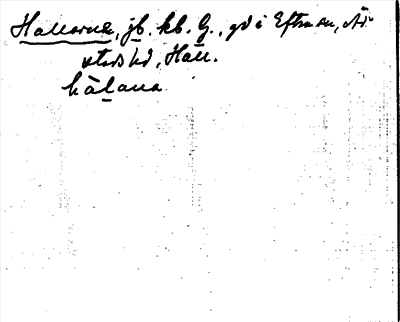 Hallarna, jb. kb. G., gd i Eftra sn, År-
stads hd, Hall.
hàḷana